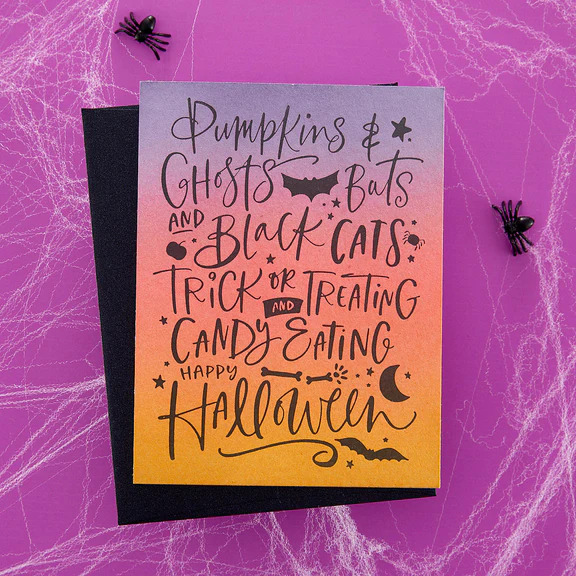 Pumpkins &
GHOSTS BATS
AND Black CATS
TRICK OR TREATING
AND
CANDY EATING
HAPPY
Halloween